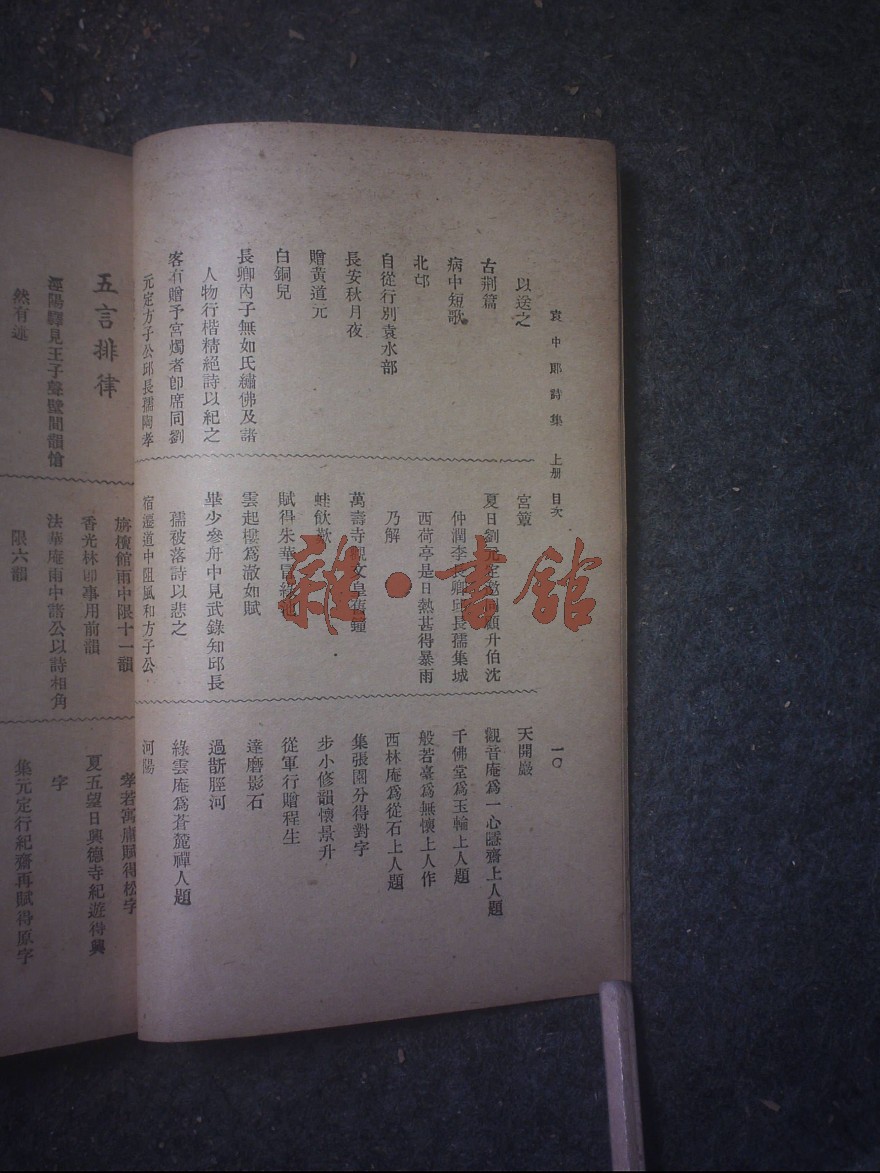 袁中郎詩集 上册 目次
一〇
以送之
古荆篇
病中短歌
北邙
自從行別袁水部
長安秋月夜
贈黄道元
白銅兒
長卿內子無如氏繡佛及諸
人物行楷精絕詩以紀之
客有贈予宮燭者卽席同劉
元定方子公邱長孺陶孝
宮簟
夏日劉元定邀同顧升伯沈
仲潤李長卿邱長孺集城
西荷亭是日熱甚得暴雨
乃解
萬壽寺觀文皇舊鐘
蛙飲歌
賦得朱華冒綠池
雲起樓爲澈如賦
畢少參舟中見武錄知邱長
孺被落詩以悲之
宿遷道中阻風和方子公
天開巖
觀音庵爲一心隱齋上人題
千佛堂爲玉輪上人題
般若臺爲無懷上人作
西林庵爲從石上人題
集張園分得對字
步小修韻懷景升
從軍行贈程生
達磨影石
過斮脛河
綠雲庵爲蒼麓禪人題
河陽
五言排律
涇陽驛見王子聲壁間韻愴
然有述
旃檀館雨中限十一韻
香光林卽事用前韻
法華庵雨中諸公以詩相角
限六韻
孝若寓廟賦得松字
夏五望日興德寺紀遊得興
字
集元定行紀齋再賦得原字
雜·書館